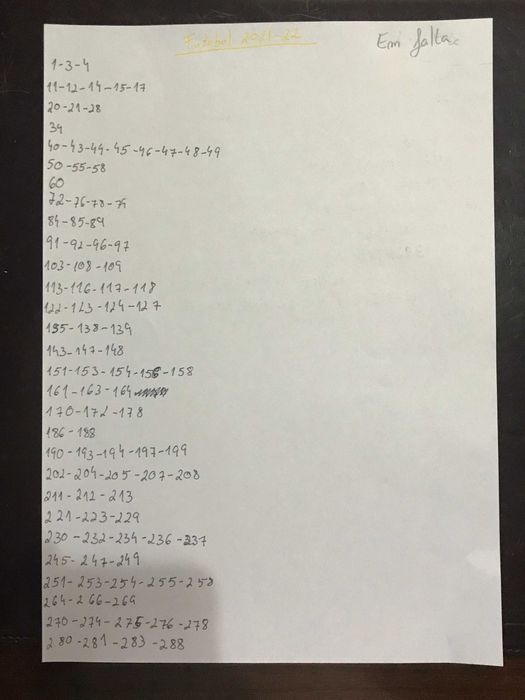 Futebol 2021-22
Em falta:
1-3-4
11-12-14-15-17
20-21-28
34
40-43-44-45-46-47-48-49
50-55-58
60
72-76-78-79
84-85-89
91-92-96-97
103-108-109
113-116-117-118
122-123-124-127
135-138-139
143-147-148
151-153-154-156-158
161-163-164
170-172-178
186-188
190-193-194-197-199
202-204-205-207-208
211-212-213
221-223-229
230-232-234-236-237
245-247-249
251-253-254-255-258
264-266-269
270-274-275-276-278
280-281-283-288